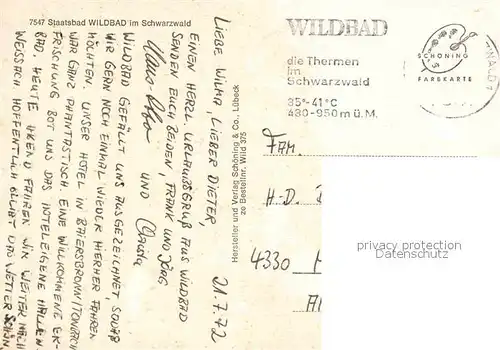 7547 Staatsbad WILDBAD im Schwarzwald
21.7.72
LIEBE WILMA, LIEBER DIETER,
EINEN HERZL. URLAUBSGRUß AUS WILDBAD
SENDEN EUCH BEIDEN, FRANK UND JÖRG
UND Claudia
WILDBAD GEFÄLLT UNS AUSGEZEICHNET, SODAß
WIR GERN NOCH EINMAL WIEDER HIERHER FAHREN
MÖCHTEN. UNSER HOTEL IN BAIERSBRONN/TONBACH
WAR GANZ PHANTASTISCH. EINE WILLKOMMENE ER-
FRISCHUNG BOT UNS DAS HOTELEIGENE HALLEN-
BAD. HEUTE ABEND FAHREN WIR WEITER NACH
WEISSACH. HOFFENTLICH BLEIBT DAS WETTER SCHÖN
Hersteller und Verlag Schöning & Co., Lübeck
ze Bestellnr. Wild 375
WILDBAD
die Thermen
im
Schwarzwald
35°-41°C
430-950m ü.M.
SCHÖNING
FARBKARTE
FAM.
H.-D.
4330
privacy protection
Datenschutz